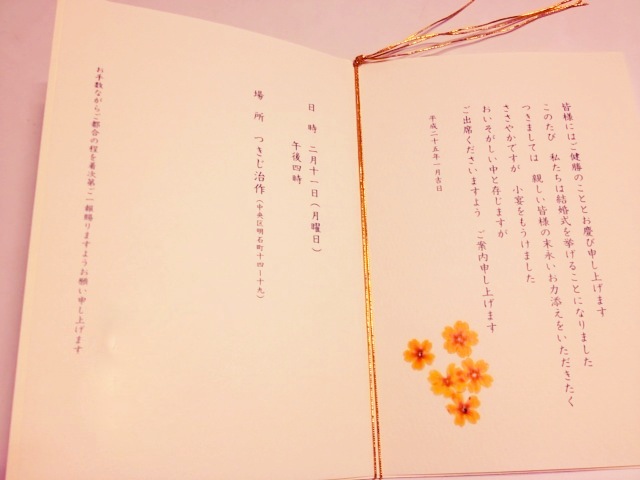 皆様にはご健勝のこととお慶び申し上げます
このたび　私たちは結婚式を挙げることになりました
つきましては　親しい皆様の末永いお力添えをいただきたく
ささやかですが　小宴をもうけました
おいそがしい中と存じますが
ご出席くださいますよう　ご案内申し上げます
平成二十五年一月吉日
日　時　二月十一日（月曜日）
午後四時
場　所　つきじ治作（中央区明石町十四ー十九）
お手数ながらご都合の程を着次第ご一報賜りますようお願い申し上げます